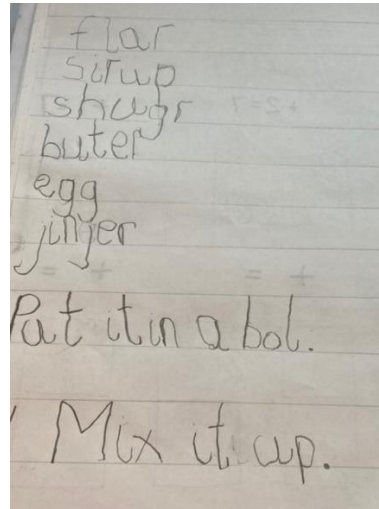 flar
sirup
shugr
buter
egg
jinjer
Put it in a bol.
Mix it up.